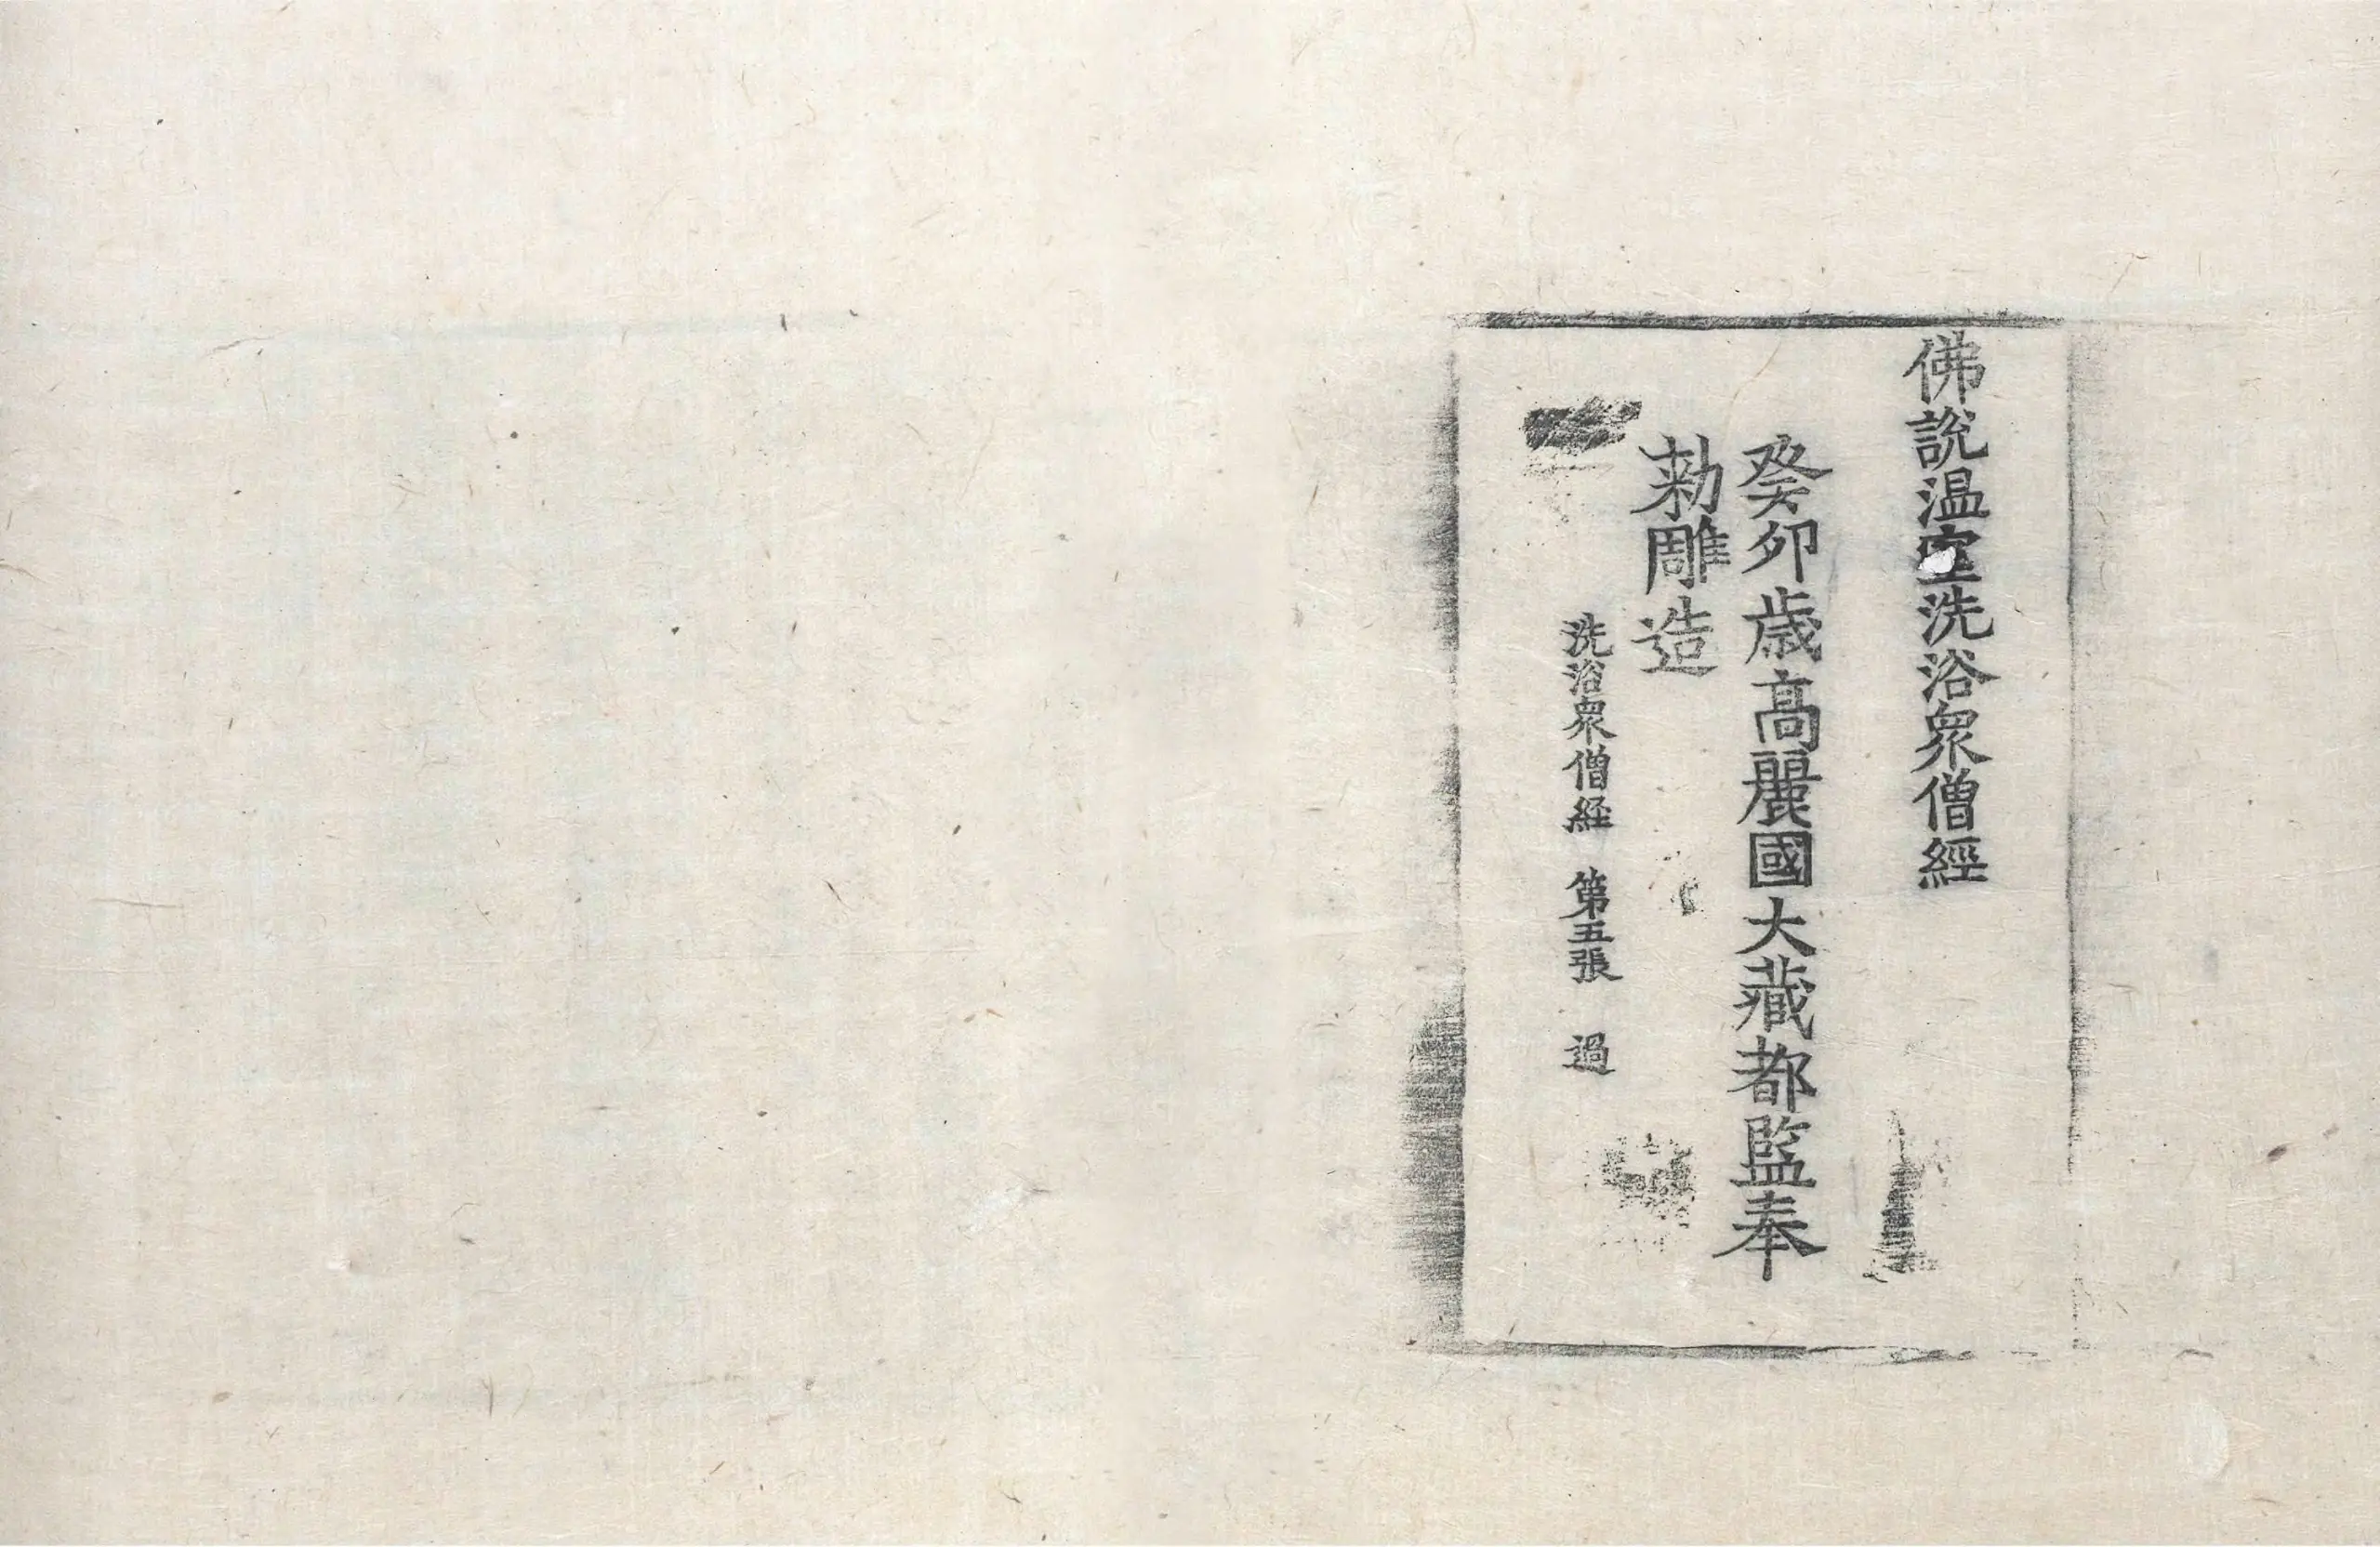 佛說温室洗浴衆僧經
癸卯歲高麗國大藏都監奉
勅雕造
洗浴衆僧経 第五張 過